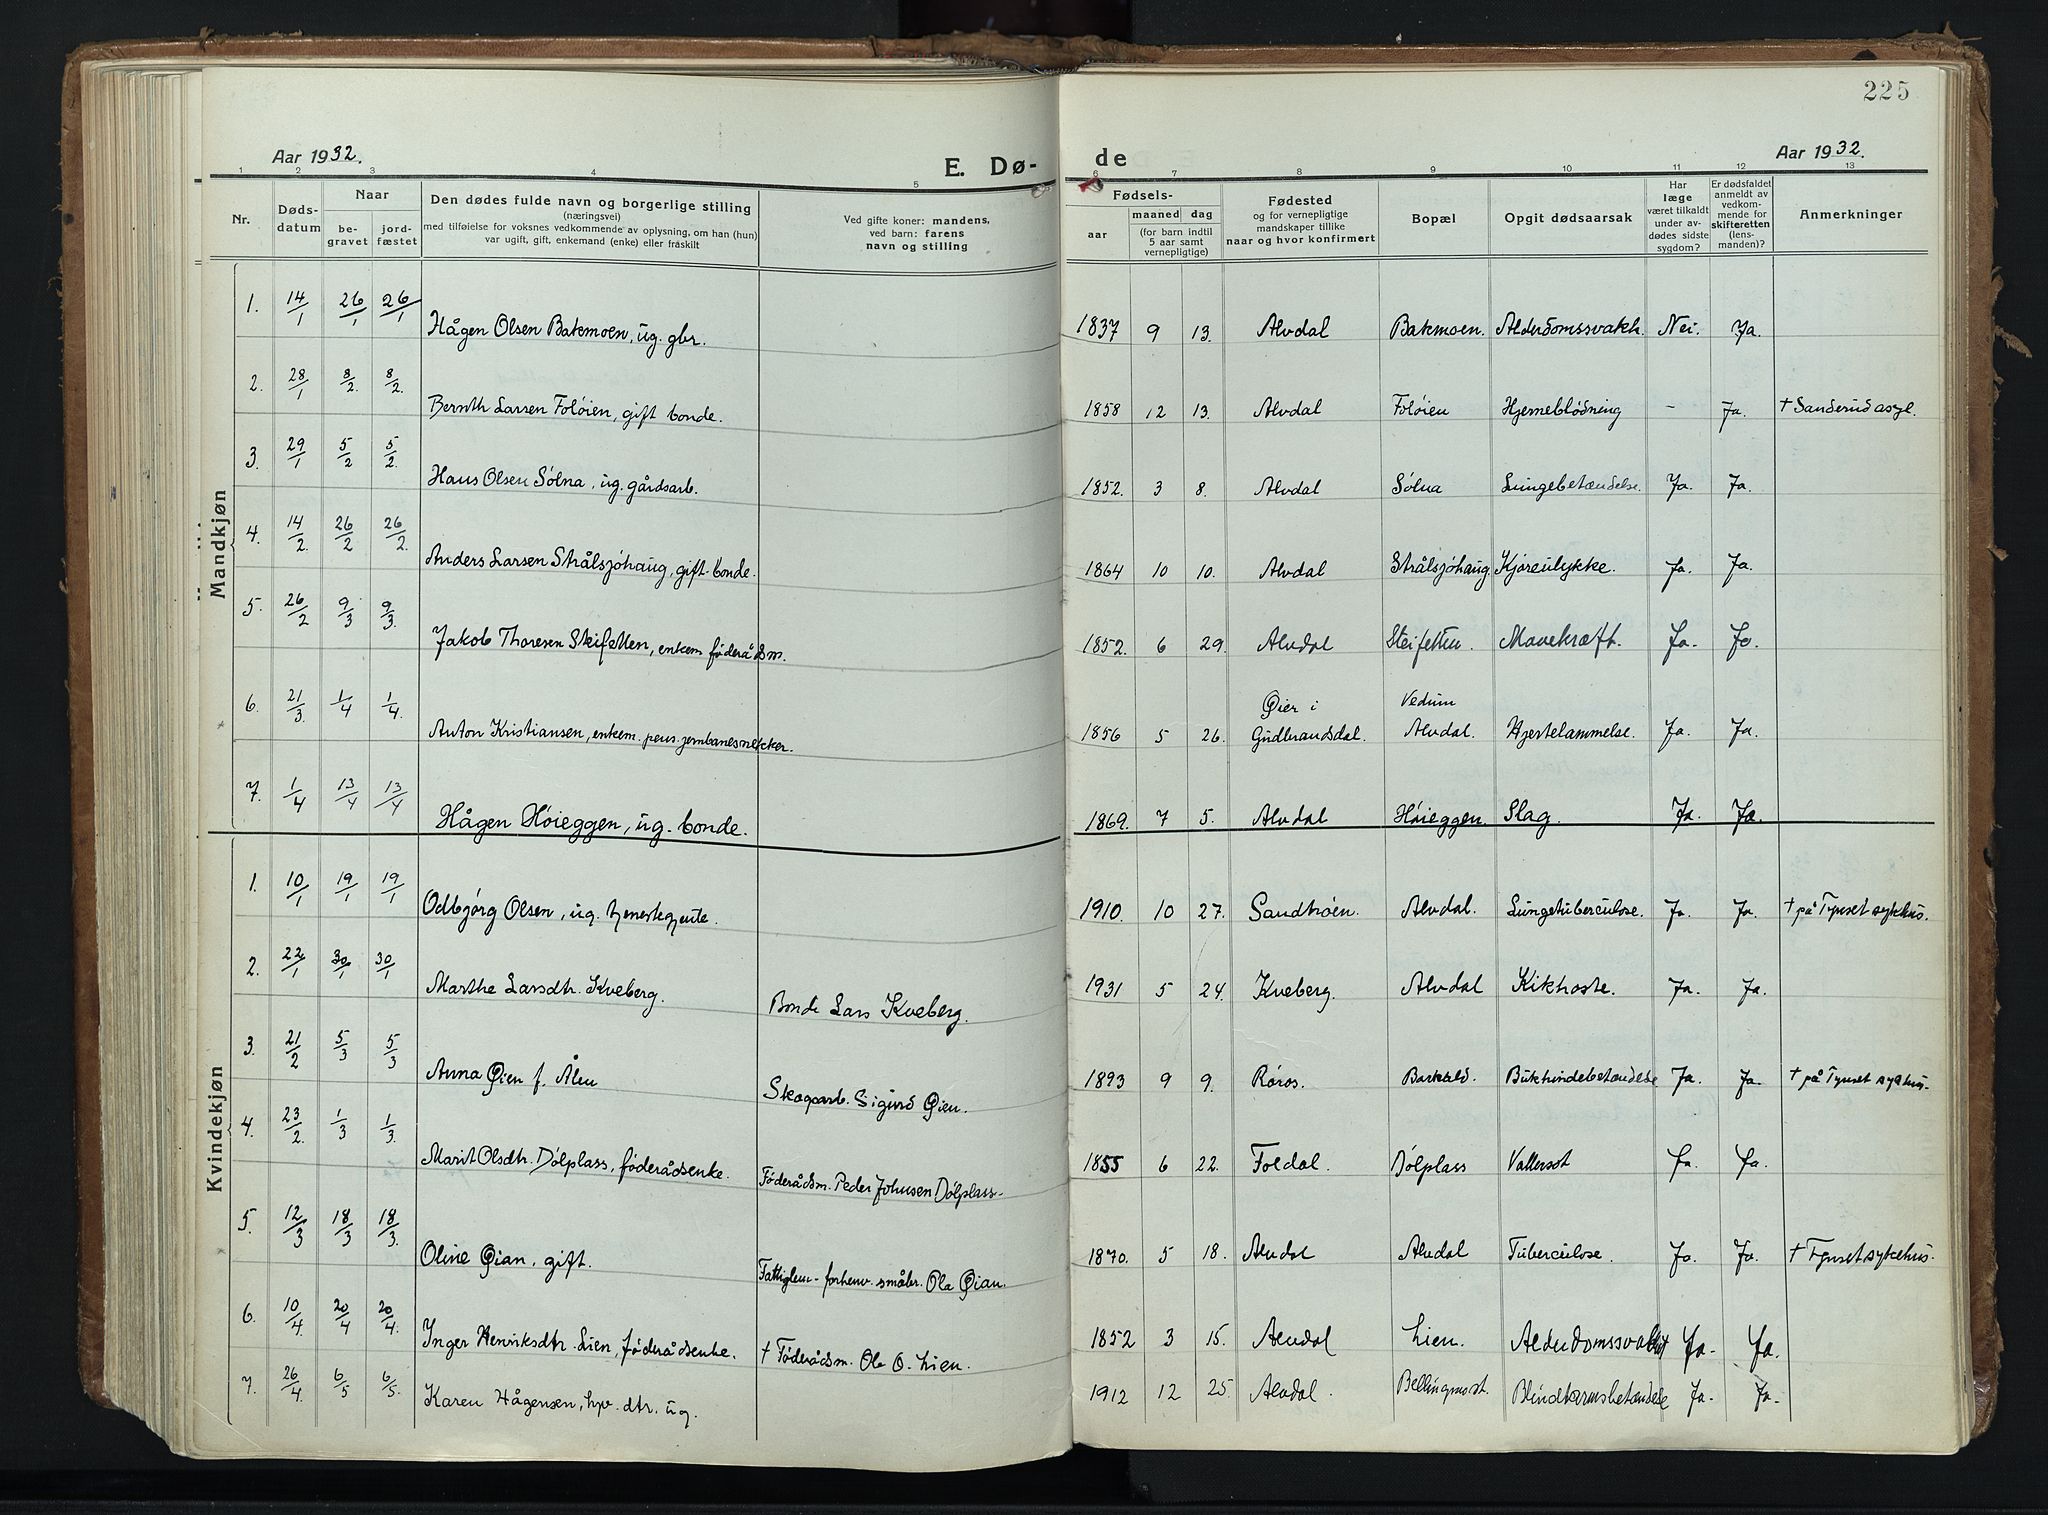 225
Aar 1932.
E. Dø-
de
Aar 1932.
1 2 3 4 5 6 7 8 9 10 11 12 13
Nr.
Døds-
datum
Naar
be-
gravet
jord-
fæstet
Den dødes fulde navn og borgerlige stilling
(næringsvei)
med tilføielse for voksnes vedkommende av oplysning, om han (hun)
var ugift, gift, enkemand (enke) eller fraskilt
Ved gifte koner: mandens,
ved barn: farens
navn og stilling
Fødsels-
aar
maaned dag
(for barn indtil
5 aar samt
vernepligtige)
Fødested
og for vernepligtige
mandskaper tillike
naar og hvor konfirmert
Bopæl
Opgit dødsaarsak
Har
læge
været tilkaldt
under av-
dødes sidste
sygdom?
Er dødsfaldet
anmeldt av
vedkom-
mende for
skifteretten
(lens-
manden)?
Anmerkninger
Mandkjøn
1. 14/1 26/1 26/1 Hågen Olsen Bakmoen, ug. gbr. 1837 9 13. Alvdal Bakmoen. Alderdomssvakh. Nei. Ja.
2. 28/1 8/2. 8/2. Bernth Larsen Foløien, gift bonde. 1858 12 13. Alvdal Foløien Hjerneblødning - Ja. † Sanderud asyl.
3. 29/1 5/2 5/2. Hans Olsen Sølna, ug. gårdsarb. 1852. 3 8. Alvdal Sølna Lungebetændelse. Ja. Ja.
4. 14/2. 26/2 26/2. Anders Larsen Strålsjøhaug, gift bonde. 1864 10 10. Alvdal Strålsjøhaug Kjøreulykke. Ja. Ja.
5. 26/2 9/3 9/3. Jakob Thoresen Steifetten, enkem føderådsm. 1852. 6 29. Alvdal Steifetten. Mavekræft. Ja. Ja.
6. 21/3. 1/4 1/4. Anton Kristiansen, enkem. pens. jernbanesnekker. 1856 5 26. Øier i
Gudbrandsdal. Vedum
Alvdal. Hjertelammelse. Ja. Ja.
7. 1/4 13/4 13/4 Hågen Høieggen, ug. bonde. 1869. 7 5. Alvdal Høieggen. Slag. Ja. Ja.
Kvindekjøn
1. 10/1 19/1 19/1 Odbjørg Olsen, ug. tjenestejente. 1910. 10 27. Sandtrøen. Alvdal. Lungetuberculose. Ja. Ja. † på Tynset sykehus.
2. 22/1 30/1 30/1 Marthe Larsdtr. Kveberg. Bonde Lars Kveberg. 1931 5 24. Kveberg. Alvdal Kikhoste. Ja. Ja.
3. 21/2 5/3 5/3 Anna Øien f. Ålen Skogsarb. Sigurd Øien. 1893 9 9. Røros. Barkald. Bukhindebetændelse Ja. Ja. † på Tynset sykehus.
4. 23/2. 1/3 1/3. Marit Olsdtr. Dølplass, føderådsenke. Føderådsm. Peder Johnsen Dølplass. 1855 6 22. Foldal. Dølplass Vattersot Ja. Ja.
5. 12/3 18/3 18/3. Oline Øian, gift. Fattiglem - forhenv. småbr. Ola Øian. 1870. 5 18. Alvdal Alvdal Tuberculose. Ja. Ja. † Tynset sykehus.
6. 10/4 20/4 20/4. Inger Henriksdtr. Lien, føderådsenke. † Føderådsm. Ola O. Lien. 1852 3 15. Alvdal Lien. Alderdomssvakhet Ja. Ja.
7. 26/4 6/5 6/5. Karen Hågensen, hpv. dtr. ug. 1912 12 25. Alvdal. Bellingmost. Blindtarmsbetændelse Ja. Ja.